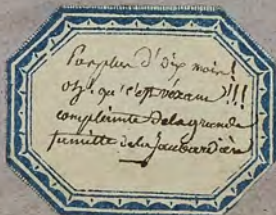 Pas plus d'dix mois!
oh! qu'c'est vexant!!!
complainte de la grande
famille de la Jaubardière